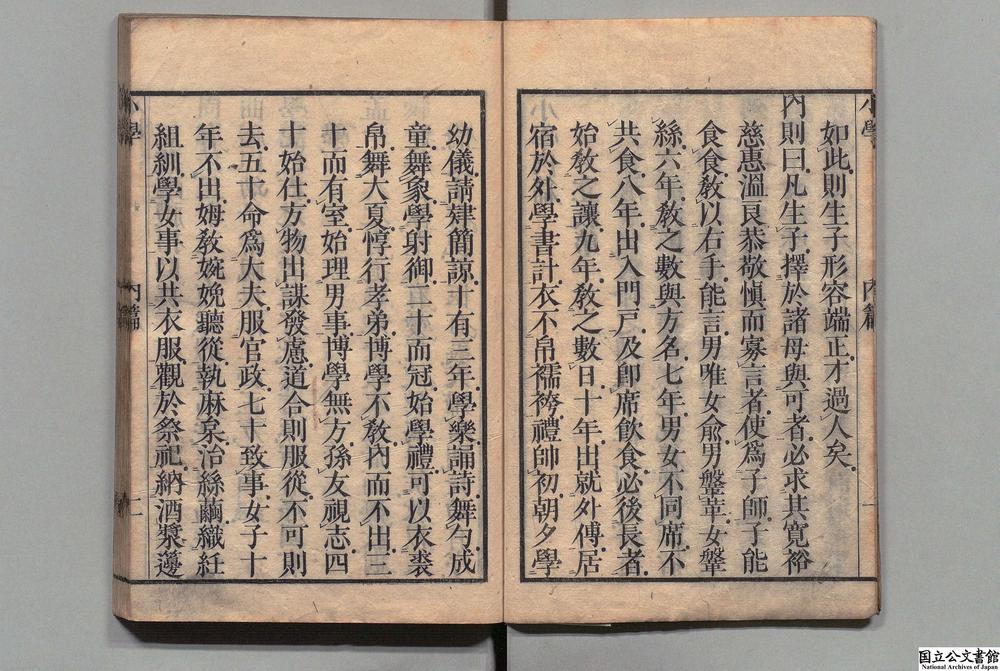 如此則生子形容端正才過人矣
內則曰凡生子擇於諸母與可者必求其寬裕
慈惠溫良恭敬慎而寡言者使爲子師子能
食食教以右手能言男唯女俞男鞶革女鞶
絲六年教之數與方名七年男女不同席不
共食八年出入門戶及即席飲食必後長者
始教之讓九年教之數日十年出就外傅居
宿於外學書計衣不帛襦袴禮帥初朝夕學
幼儀請肄簡諒十有三年學樂誦詩舞勺成
童舞象學射御二十而冠始學禮可以衣裘
帛舞大夏惇行孝弟博學不教內而不出三
十而有室始理男事博學無方孫友視志四
十始仕方物出謀發慮道合則服從不可則
去五十命爲大夫服官政七十致事女子十
年不出姆教婉娩聽從執麻枲治絲繭織紝
組紃學女事以共衣服觀於祭祀納酒漿籩
小學
內篇
一
小學
內篇
二
国立公文書館
National Archives of Japan